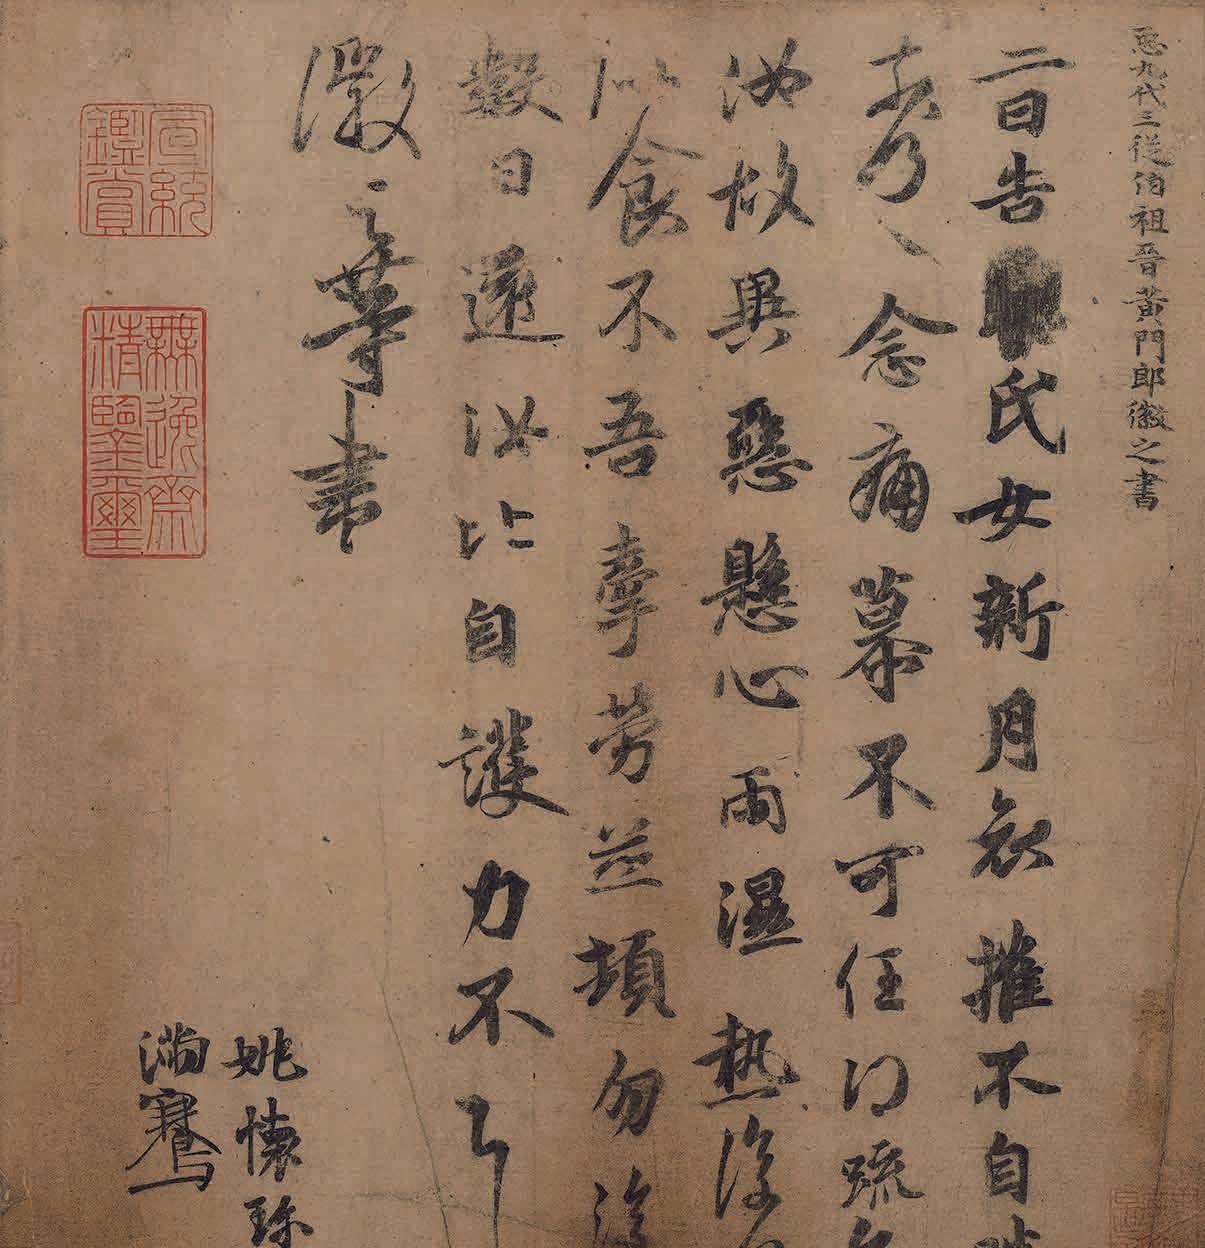 𢘑九代三從伯祖晉黃門郎徽之書
二日告氏女新月哀摧不自
柰何〻念痛慕不可任得疏
汝故異惡懸心雨濕熱復
似食不吾牽勞並頓勿復
數日還汝比自護力不
徽之等書
姚懷珍
滿騫
宣統鑑賞
無逸齋精鑒璽